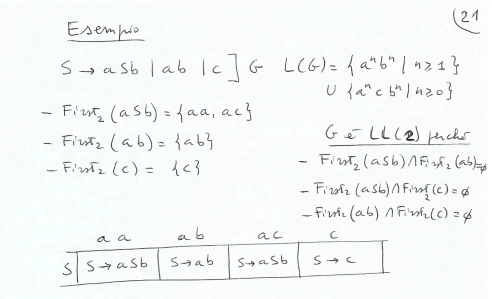 (21
Esempio
S → aSb | ab | c ] G L(G) = { aⁿbⁿ | n ≥ 1 }
∪ { aⁿ c bⁿ | n ≥ 0 }
- First₂ (aSb) = {aa, ac}
- First₂ (ab) = {ab}
- First₂ (c) = {c}
G è LL(2) perché
- First₂ (aSb) ∩ First₂ (ab) = ∅
- First₂ (aSb) ∩ First₂ (c) = ∅
- First₂ (ab) ∩ First₂ (c) = ∅
aa ab ac c
S S → aSb S → ab S → aSb S → c